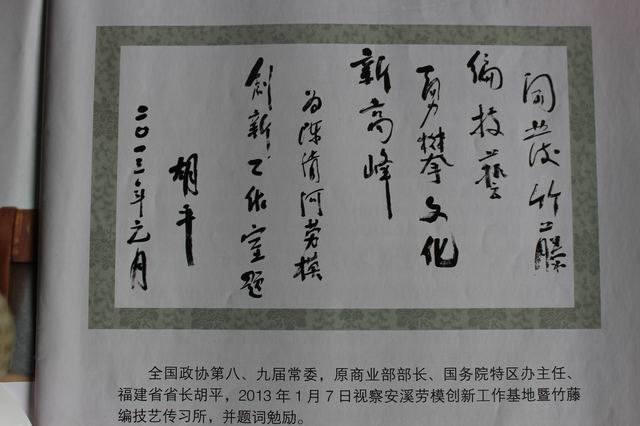 開发竹藤
编技艺
勇攀文化
新高峰
为陈清河劳模
创新工作室题
胡平
二〇一三年元月
全国政协第八、九届常委，原商业部部长、国务院特区办主任、
福建省省长胡平，2013 年 1 月 7 日视察安溪劳模创新工作基地暨竹藤
编技艺传习所，并题词勉励。